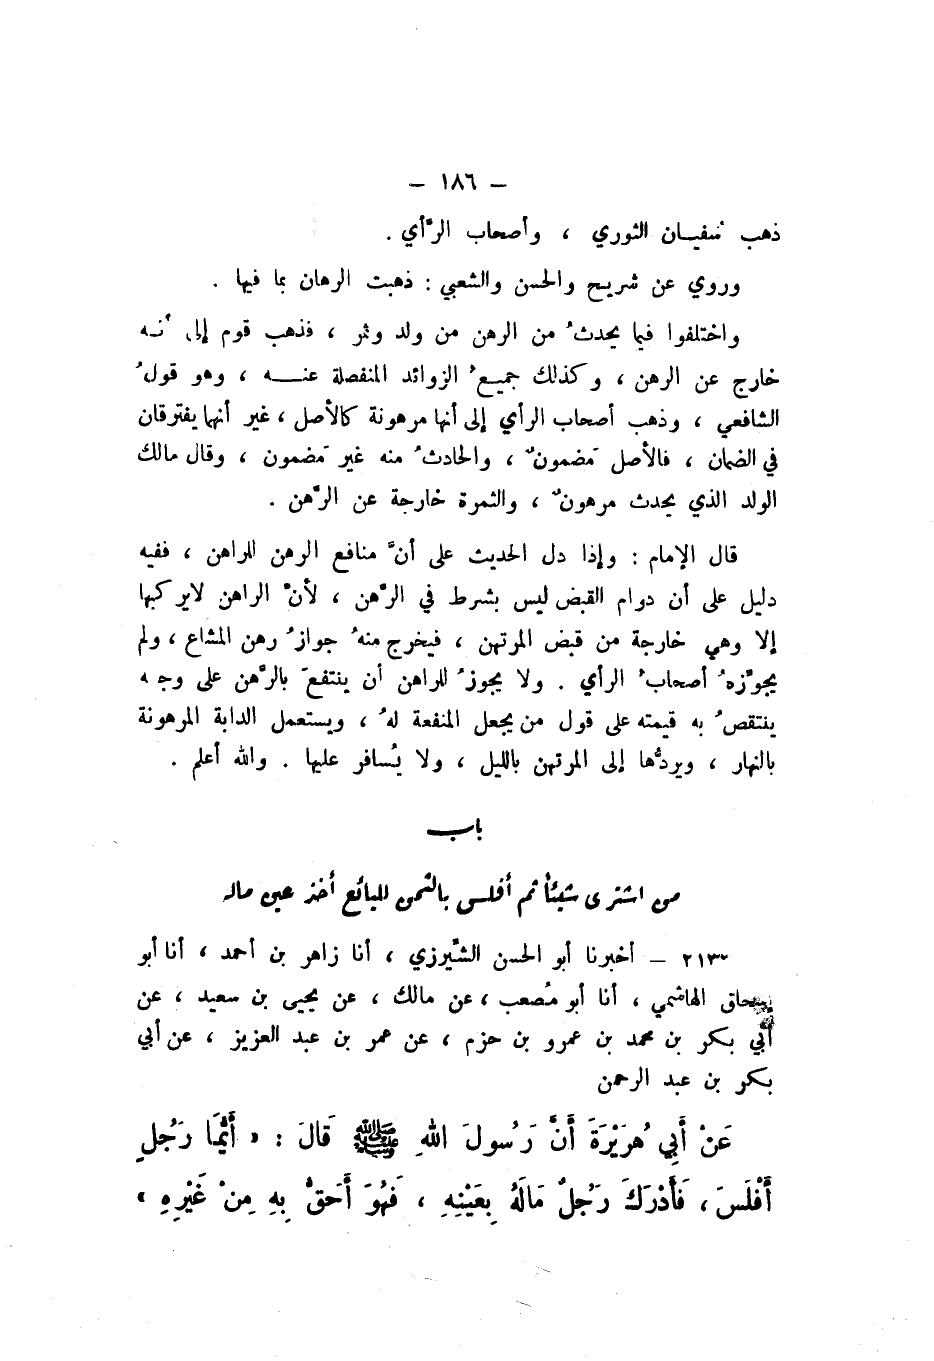 – ١٨٦ –
ذهب سُفيان الثوري ، وأصحاب الرَّأي .
وروي عن شريح والحسن والشعبي : ذهبت الرهان بما فيها .
واختلفوا فيما يحدثُ من الرهن من ولد وثمر ، فذهب قوم إلى أنه
خارج عن الرهن ، وكذلك جميعُ الزوائد المنفصلة عنه ، وهو قولُ
الشافعي ، وذهب أصحاب الرأي إلى أنها مرهونة كالأصل ، غير أنهما يفترقان
في الضمان ، فالأصل مَضمونٌ ، والحادثُ منه غير مَضمون ، وقال مالك
الولد الذي يحدث مرهونٌ ، والثمرة خارجة عن الرَّهن .
قال الإمام : وإذا دل الحديث على أنَّ منافع الرهن للراهن ، ففيه
دليل على أن دوام القبض ليس بشرط في الرَّهن ، لأنَّ الراهن لا يركبها
إلا وهي خارجة من قبض المرتهن ، فيخرج منهُ جوازُ رهن المشاع ، ولم
يجوِّزهُ أصحابُ الرأي . ولا يجوزُ للراهن أن ينتفعَ بالرَّهن على وجه
ينتقصُ به قيمته على قول من يجعل المنفعة لهُ ، ويستعمل الدابة المرهونة
بالنهار ، ويردُّها إلى المرتهن بالليل ، ولا يُسافر عليها . والله أعلم .
باب
من اشترى شيئاً ثم أفلس بالثمن للبائع أخذ عين ماله
٢١٣٣ – أخبرنا أبو الحسن الشِّيرزي ، أنا زاهر بن أحمد ، أنا أبو
إسحاق الهاشمي ، أنا أبو مُصعب ، عن مالك ، عن يحيى بن سعيد ، عن
أبي بكر بن محمد بن عمرو بن حزم ، عن عمر بن عبد العزيز ، عن أبي
بكر بن عبد الرحمن
عَنْ أَبِي هُرَيْرَةَ أَنَّ رَسُولَ اللهِ ﷺ قَالَ : « أَيُّمَا رَجُلٍ
أَفْلَسَ ، فَأَدْرَكَ رَجُلٌ مَالَهُ بِعَيْنِهِ ، فَهُوَ أَحَقُّ بِهِ مِنْ غَيْرِهِ »